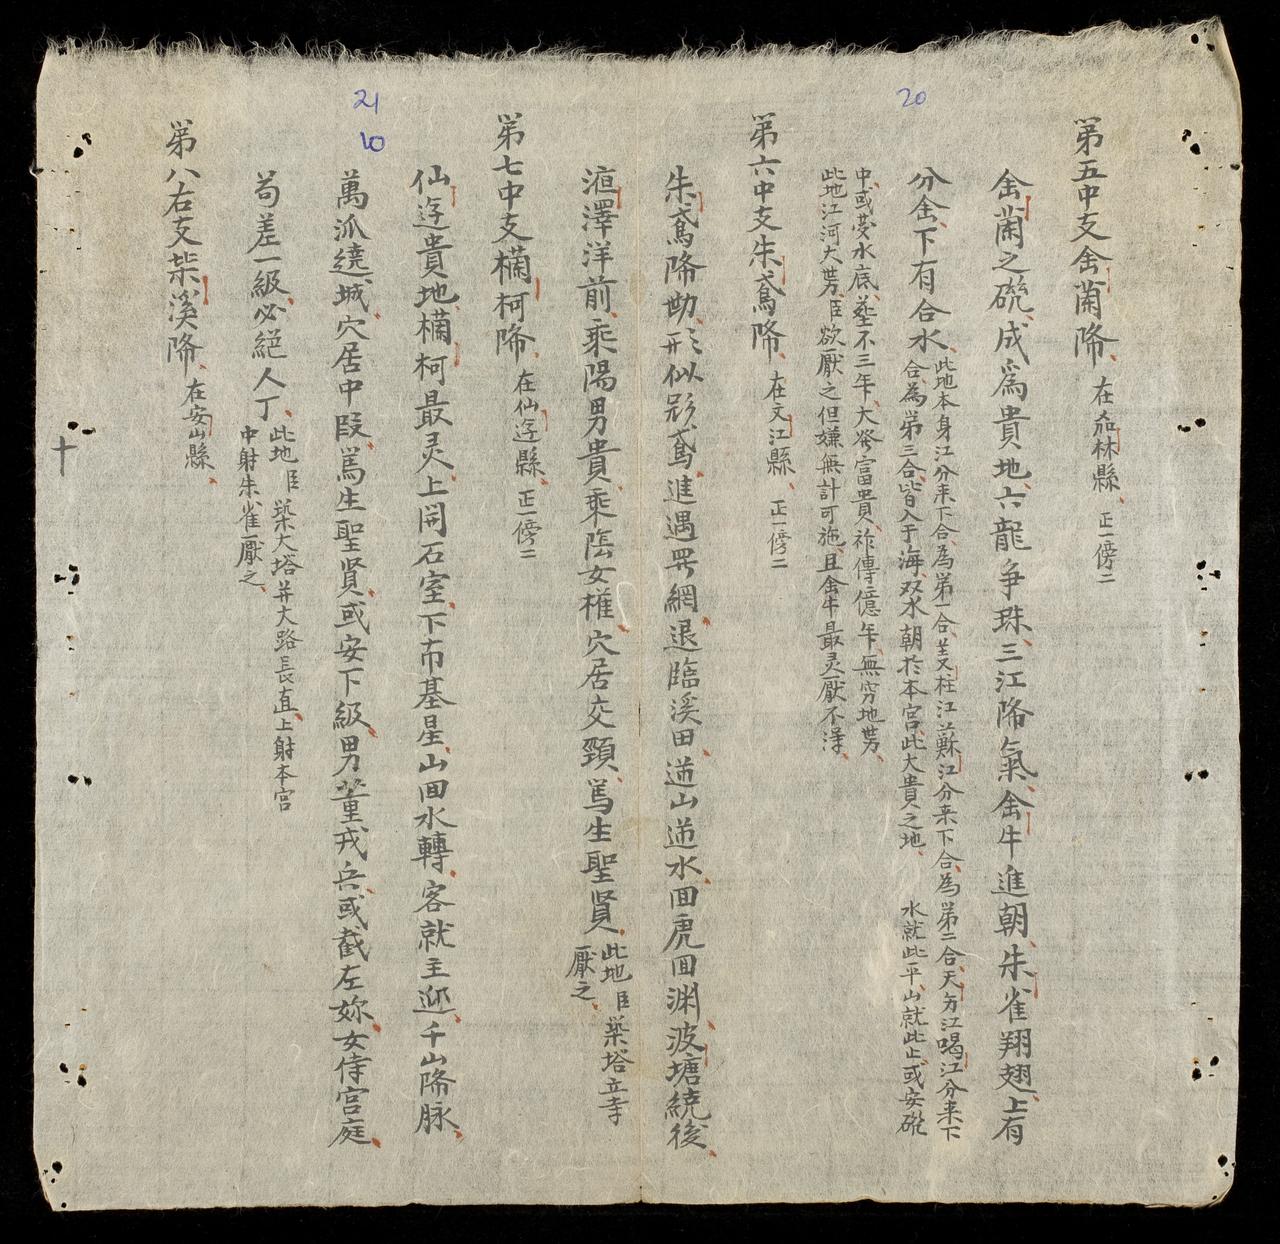 20
第五中支金蘭降 在茄林縣 正一傍二
金蘭之硔成為貴地六龍争珠三江降氣金牛進朝朱雀翔翅上有
分金下有合水
此地本身江分来下合為第一合 江蘇江分来下合為第二合天 江 江分来下
合為第三合皆入于海双水朝於本宮此大貴之地 水就此平山就此止或安
中或 水底 不三年大發富貴祚傳億年無穷地势
此地江河大势臣欲厭之但嫌無計可施且金牛最灵厭不淂
第六中支朱鳶降 在文江縣 正一傍二
朱鳶降勘形似彩鳶進遇 網退臨溪田逆山逆水回虎回渊波塘繞後
洹澤洋前乘陽男貴乘陰女權穴居交頸篤生聖賢 此地臣築塔立寺
厭之
21
10
第七中支欗柯降 在仙逰縣 正一傍二
仙逰貴地欗柯最灵上開石室下布基星山回水轉客就主迎千山降脉
萬派繞城穴居中段篤生聖賢或安下級男董戎兵或截左妳女侍宮庭
苟差一級必絕人丁 此地臣築大塔并大路長直上射本宮
中射朱雀厭之
第八右支柴溪降 在安山縣
十